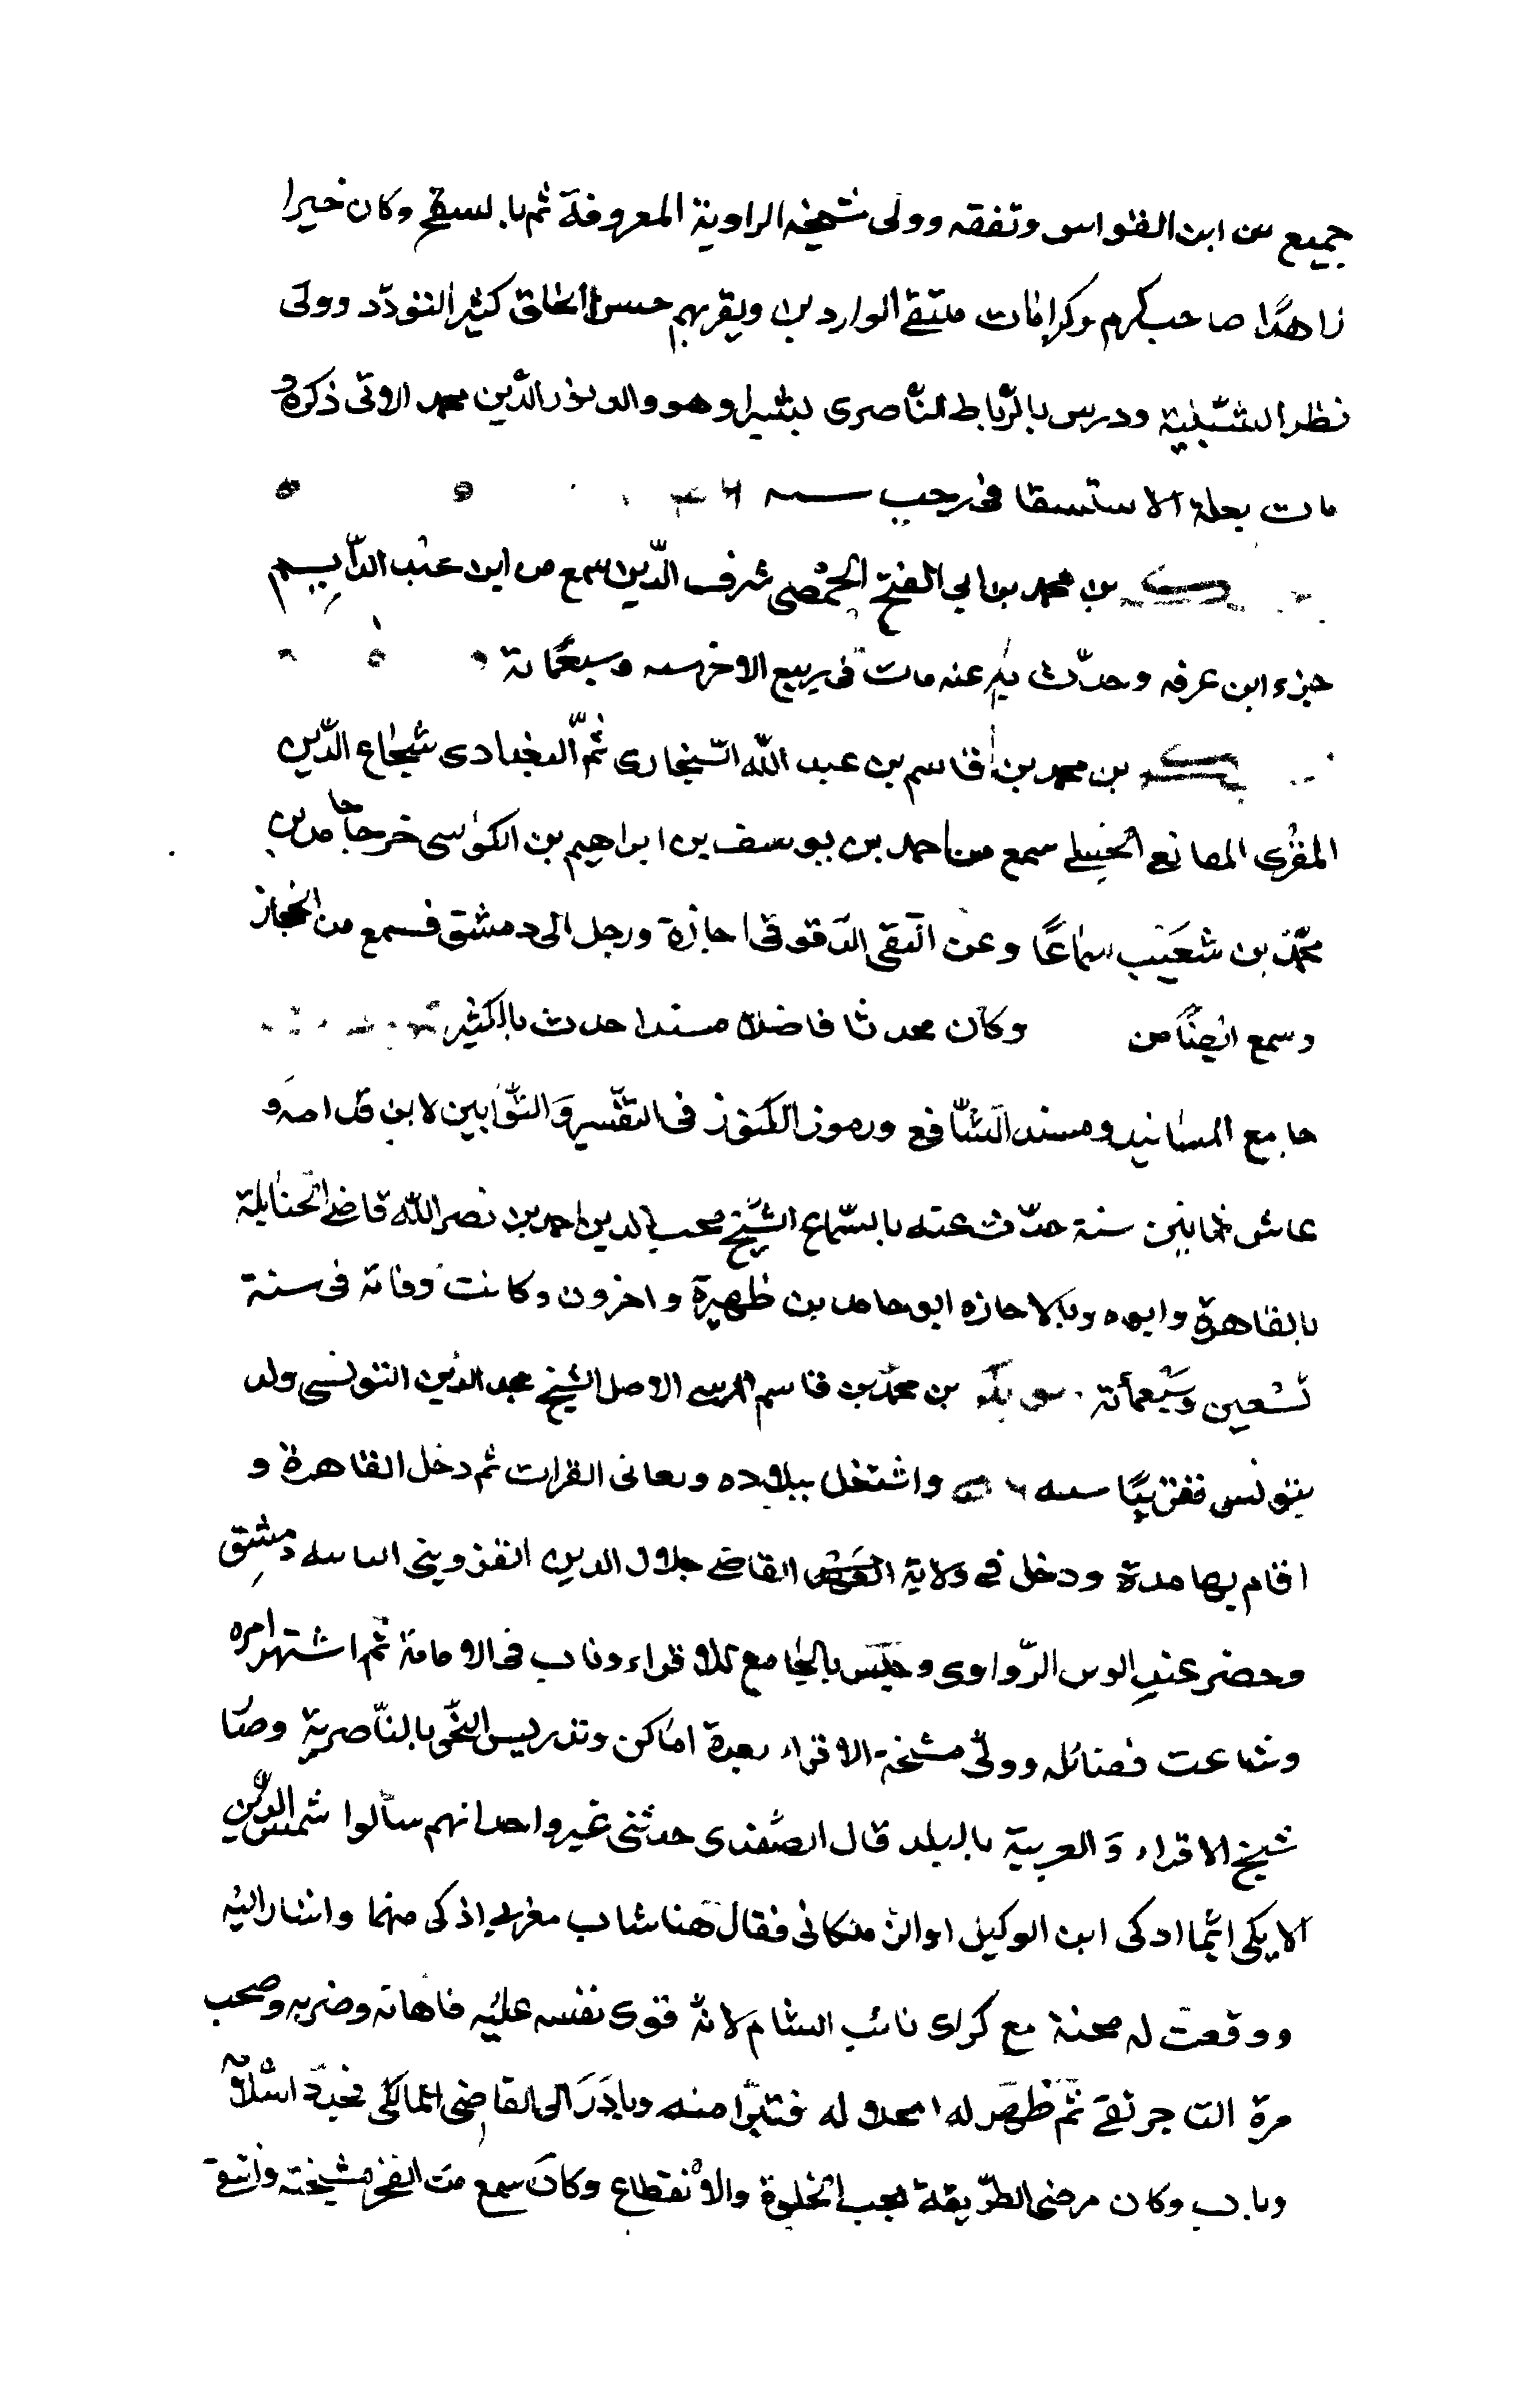 جميع من ابن القواس وتفقه وولى شيخه الراوية المعروفة ثم بالسفح وكان خيرا
زاهدًا صاحب كرم وكرامات ملتقى الواردين ويقربهم حسن الخلق كثير التودّد وولى
نظر الشبلية ودرس بالرّباط الناصرى وهو والد نور الدّين محمد الآتى ذكره
مات بعلة الاستسقا فى رجب سنه
بن محمد بن ابي الفتح الحمصى شرف الدّين سمع من ابن عبد الدّايم
جزء ابن عرفه وحدّث عنه مات فى ربيع الاخر سنه وسبعمائة
بن محمد بن قاسم بن عبد الله السّنجارى ثمّ البغدادى شجاع الدّين
المقرى المعانى الحنبلى سمع من احمد بن يوسف بن ابراهيم بن الكواسى خرجا حامد بن
محمّد بن شعيب سماعًا وعن التقى الدقوقى اجازة ورحل الى دمشق فسمع من الحجاز
وسمع ايضًا من وكان محدثا فاضلا مسندا حدث بالكثير
جامع المسانيد ومسند الشّافعى ورموز الكنوز فى التفسير والتوّابين لابن قدامه و
عاش ثمانين سنة حدّث عنه بالسّماع الشّيخ محب الدين احمد بن نصر الله قاضى الحنابلة
بالقاهرة وابوه وبالاجازه ابو حامد بن ظهيرة واخرون وكانت وفاته فى سنة
تسعين وسبعمائة بن محمّد بن قاسم المرسى الاصل الشيخ مجد الدّين التونسى ولد
بتونس تقريبًا سنه واشتغل ببلاده وتعانى القرات ثم دخل القاهرة و
اقام بها مدة ودخل فى ولاية القاضى جلال الدين القزوينى دمشق
وحضر عند الزواوى وجلس بالجامع للاقراء وناب فى الامامة ثم اشتهر امره
وشاعت فضائله وولى مشيخة الاقراء بعدة اماكن وتدريس النحو بالنّاصرية وصار
شيخ الاقراء والعربية بالبلد قال الصفدى حدثنى غير واحد انهم سألوا شمس الدّين
الايكى ايّما اذكى ابن الوكيل او الزملكانى فقال هنا شاب مغربى اذكى منهما واشار اليه
ووقعت له محنة مع كراى نائب الشام لانه قوى نفسه عليه فاهانه وضربه وصحب
مرة التاجر نقى ثم ظهر له انحلاله فتبرّا منه وبادر الى القاضى المالكى فجدد اسلامه
وتاب وكان مرضى الطّريقة يحب الخلوة والانقطاع وكان سمع من الفخر مشيخته وانتقى